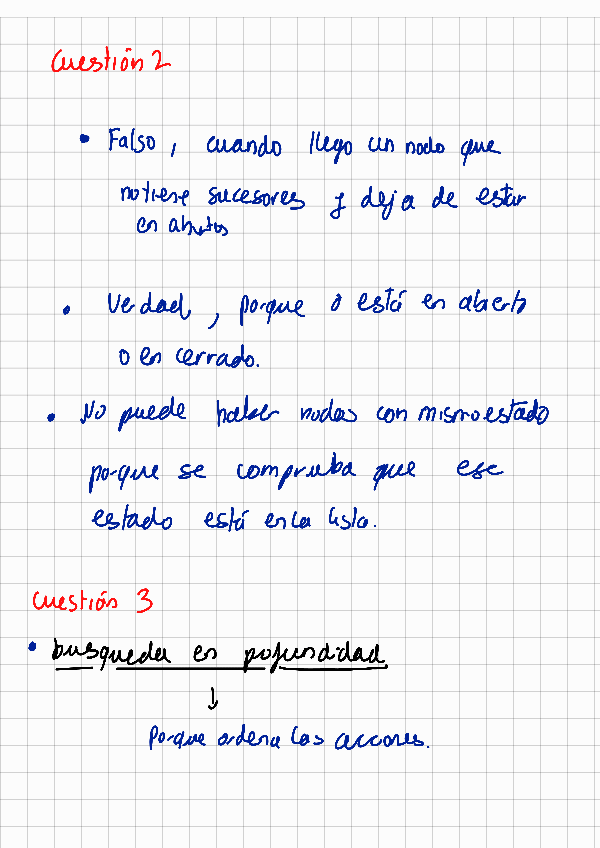 Cuestión 2
• Falso, cuando llego un nodo que
no tiene sucesores y deja de estar
en abiertos
• Verdad, porque o está en abierto
o en cerrado.
• No puede haber nodos con mismo estado
porque se comprueba que ese
estado está en la lista.
Cuestión 3
• busqueda en pofundidad
↓
Porque ordena las acciones.